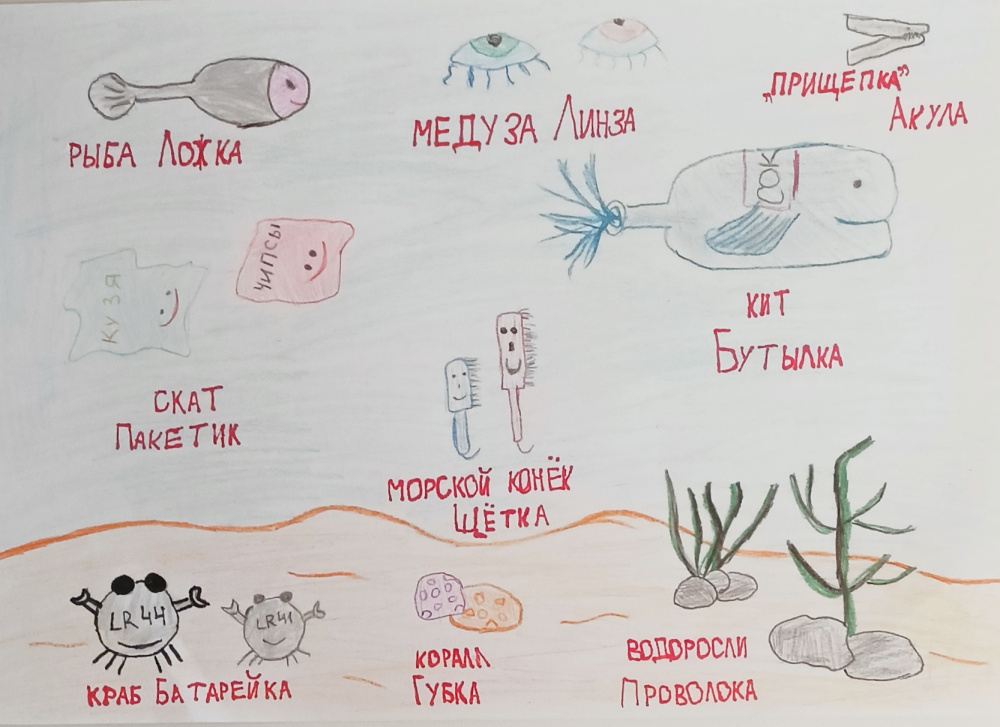 РЫБА ЛОЖКА
МЕДУЗА ЛИНЗА
„ПРИЩЕПКА”
АКУЛА
СОК
КИТ
БУТЫЛКА
КУЗЯ
ЧИПСЫ
СКАТ
ПАКЕТИК
МОРСКОЙ КОНЁК
ЩЁТКА
LR44
LR41
КРАБ БАТАРЕЙКА
КОРАЛЛ
ГУБКА
ВОДОРОСЛИ
ПРОВОЛОКА